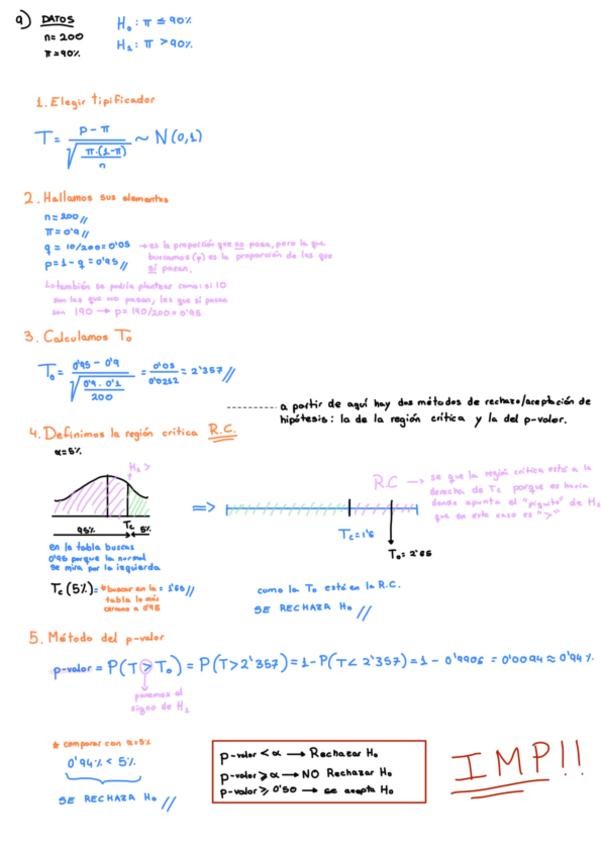 a) DATOS
n=200
π=90%
H₀: π ≤ 90%
H₁: π > 90%
1. Elegir tipificador
T = p-π / √(π·(1-π)/n) ~ N(0,1)
2. Hallamos sus elementos
n=200//
π=0'9//
q = 10/200=0'05 → es la proporción que no pasa, pero la que
buscamos (p) es la proporción de las que
sí pasan.
p=1-q=0'95//
↳ también se podría plantear como: si 10
son las que no pasan, las que sí pasan
son 190 → p=190/200=0'95
3. Calculamos T₀
T₀ = 0'95-0'9 / √(0'9·0'1/200) = 0'05/0'0212 = 2'357//
a partir de aquí hay dos métodos de rechazo/aceptación de
hipótesis: la de la región crítica y la del p-valor.
4. Definimos la región crítica R.C.
α=5%
H₁ >
95% Tc 5%
⇒
R.C → se que la región crítica está a la
derecha de Tc porque es hacia
donde apunta el "piquito" de H₁
que en este caso es ">"
Tc=1'6
T₀=2'35
en la tabla buscas
0'95 porque la normal
se mira por la izquierda
Tc(5%)= *buscar en la = 1'65//
tabla lo más
cercano a 0'95
como la T₀ está en la R.C.
SE RECHAZA H₀ //
5. Método del p-valor
p-valor = P(T > T₀) = P(T>2'357)=1-P(T<2'357)=1-0'9906=0'0094≈0'94%.
ponemos el
signo de H₁
* comparar con α=5%
0'94% < 5%
SE RECHAZA H₀ //
p-valor < α → Rechazar H₀
p-valor ≥ α → NO Rechazar H₀
p-valor ≥ 0'50 → se acepta H₀
IMP!!